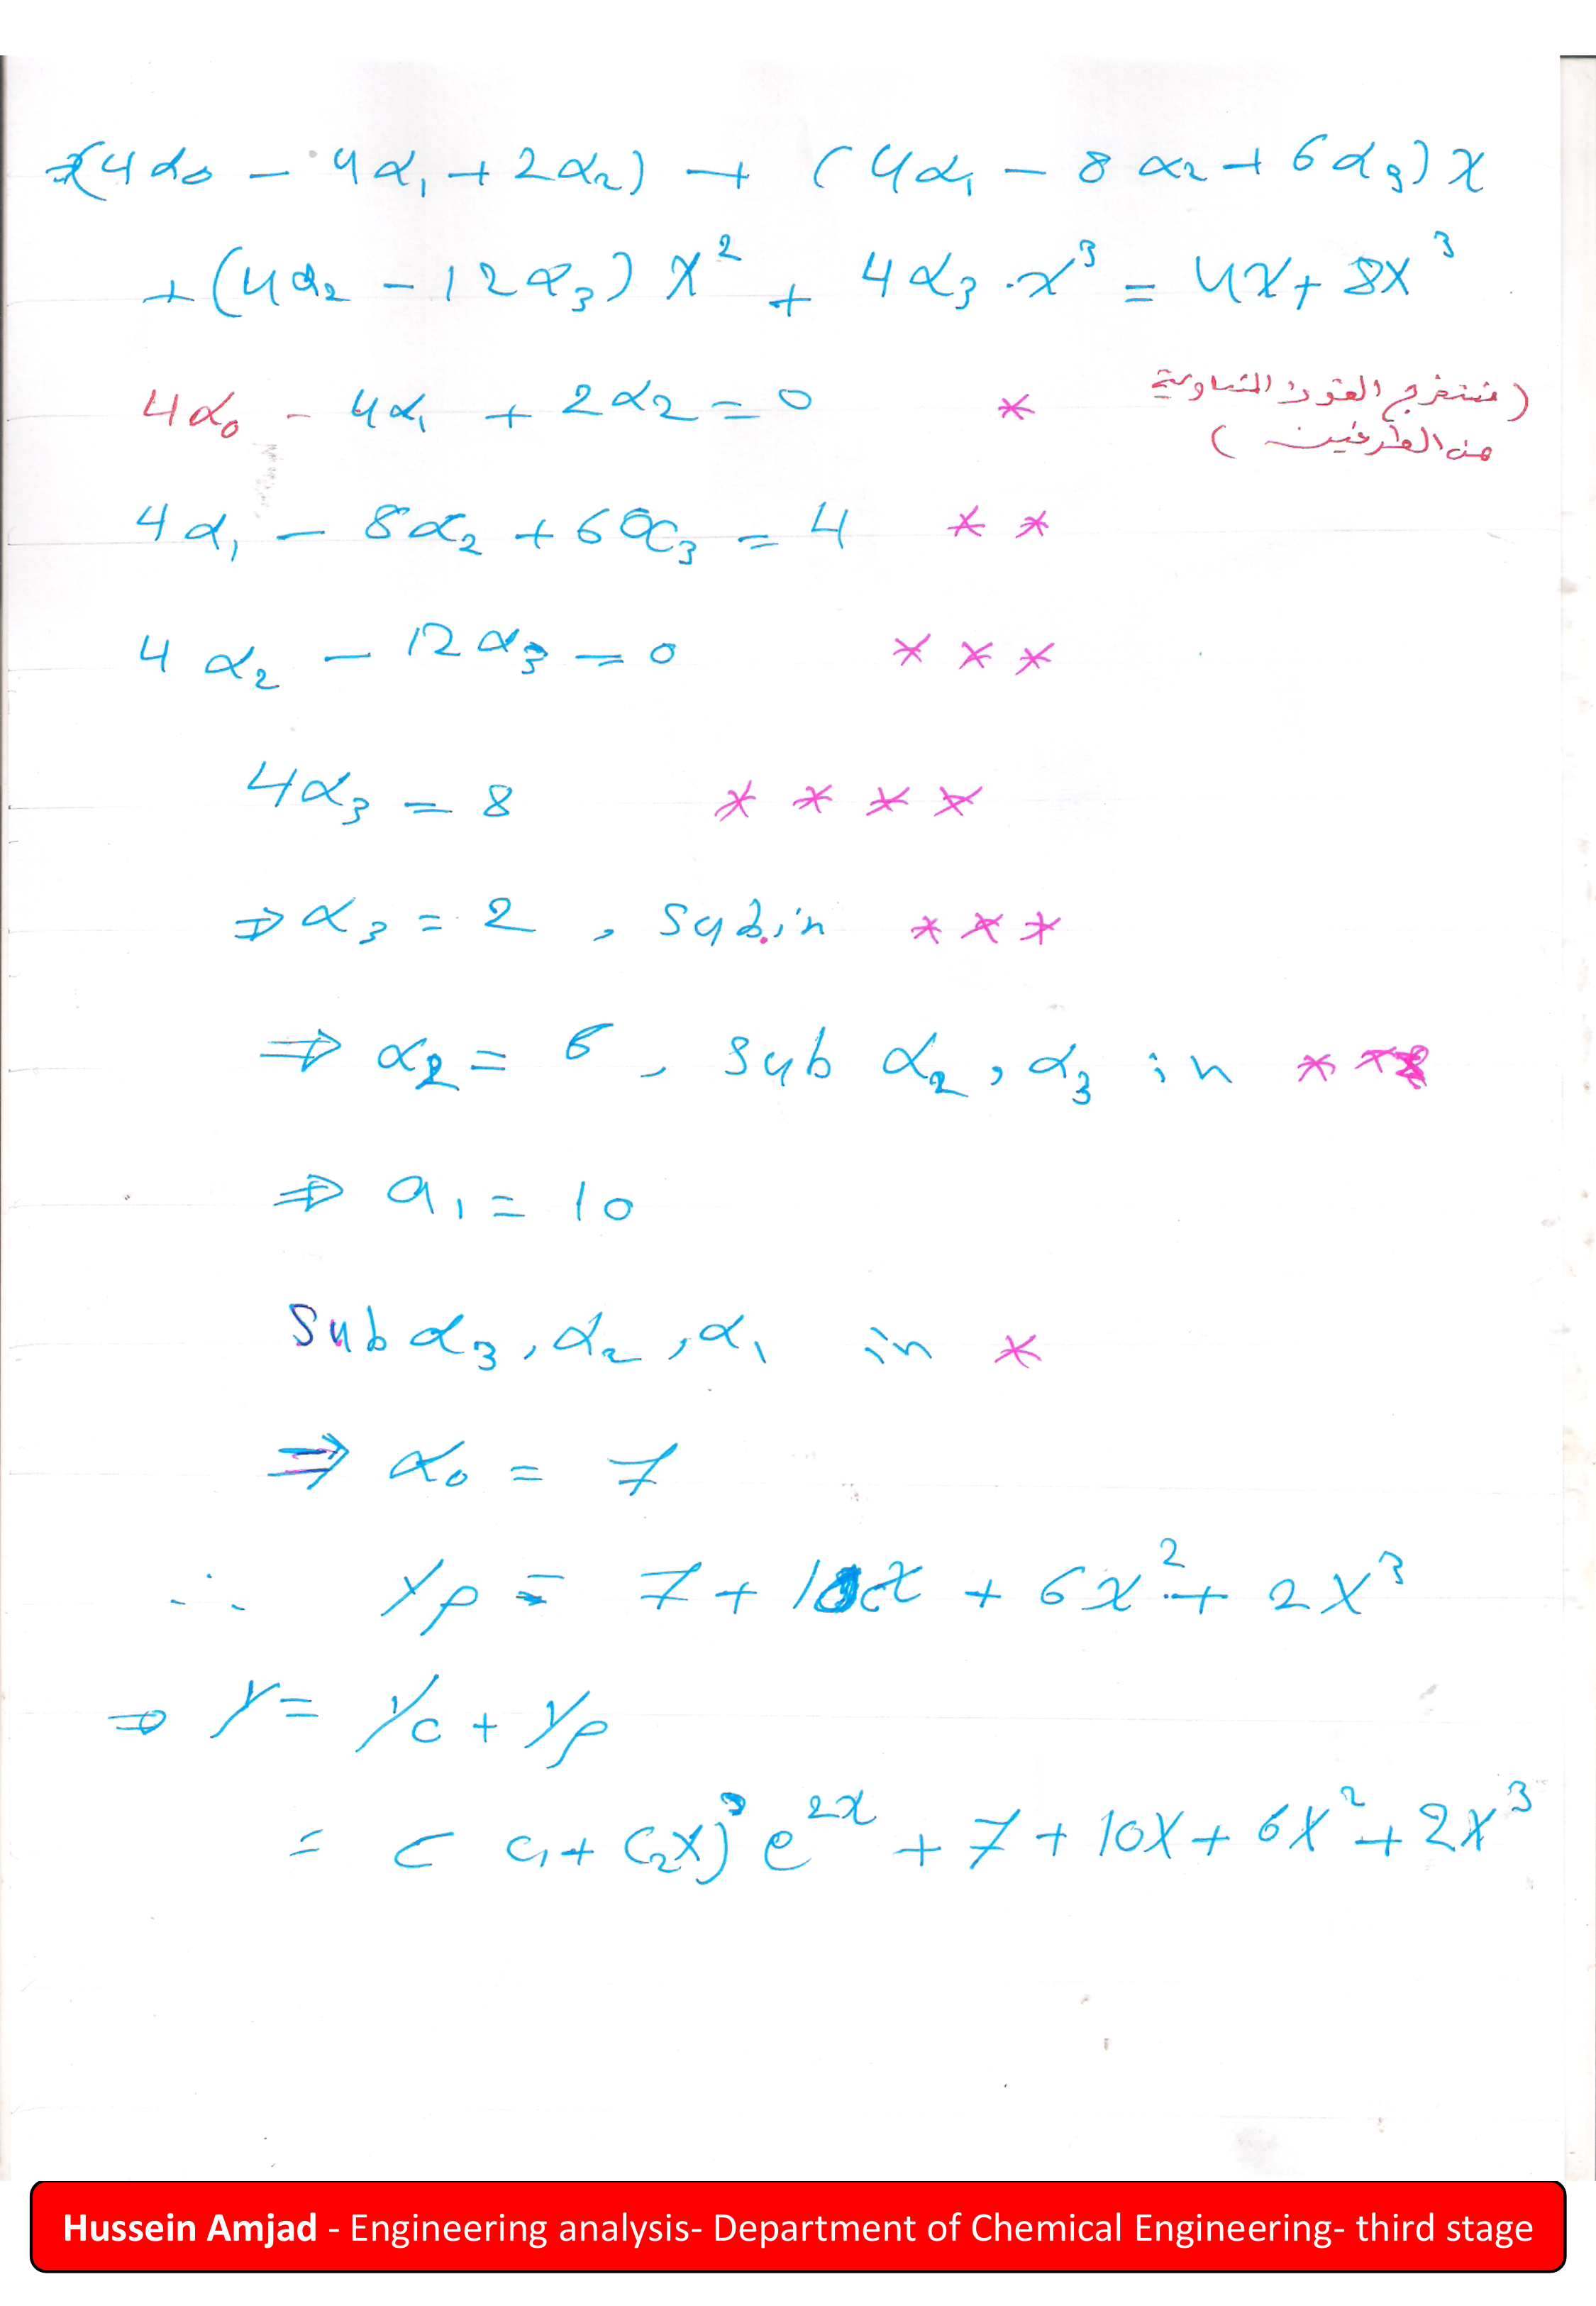 ⇒(4α₀ - 4α₁ + 2α₂) + (4α₁ - 8α₂ + 6α₃)x
+ (4α₂ - 12α₃)x² + 4α₃·x³ = 4x + 8x³
4α₀ - 4α₁ + 2α₂ = 0 * (نستخرج القوى المتساوية
من الطرفين)
4α₁ - 8α₂ + 6α₃ = 4 * *
4α₂ - 12α₃ = 0 * * *
4α₃ = 8 * * * *
⇒ α₃ = 2 , sub.in * * *
⇒ α₂ = 6 , sub α₂, α₃ in * *
⇒ a₁ = 10
Sub α₃, α₂, α₁ in *
⇒ α₀ = 7
∴ Yp = 7 + 10x + 6x² + 2x³
⇒ Y = Yc + Yp
= (c₁ + c₂x) e^2x + 7 + 10x + 6x² + 2x³
Hussein Amjad - Engineering analysis- Department of Chemical Engineering- third stage